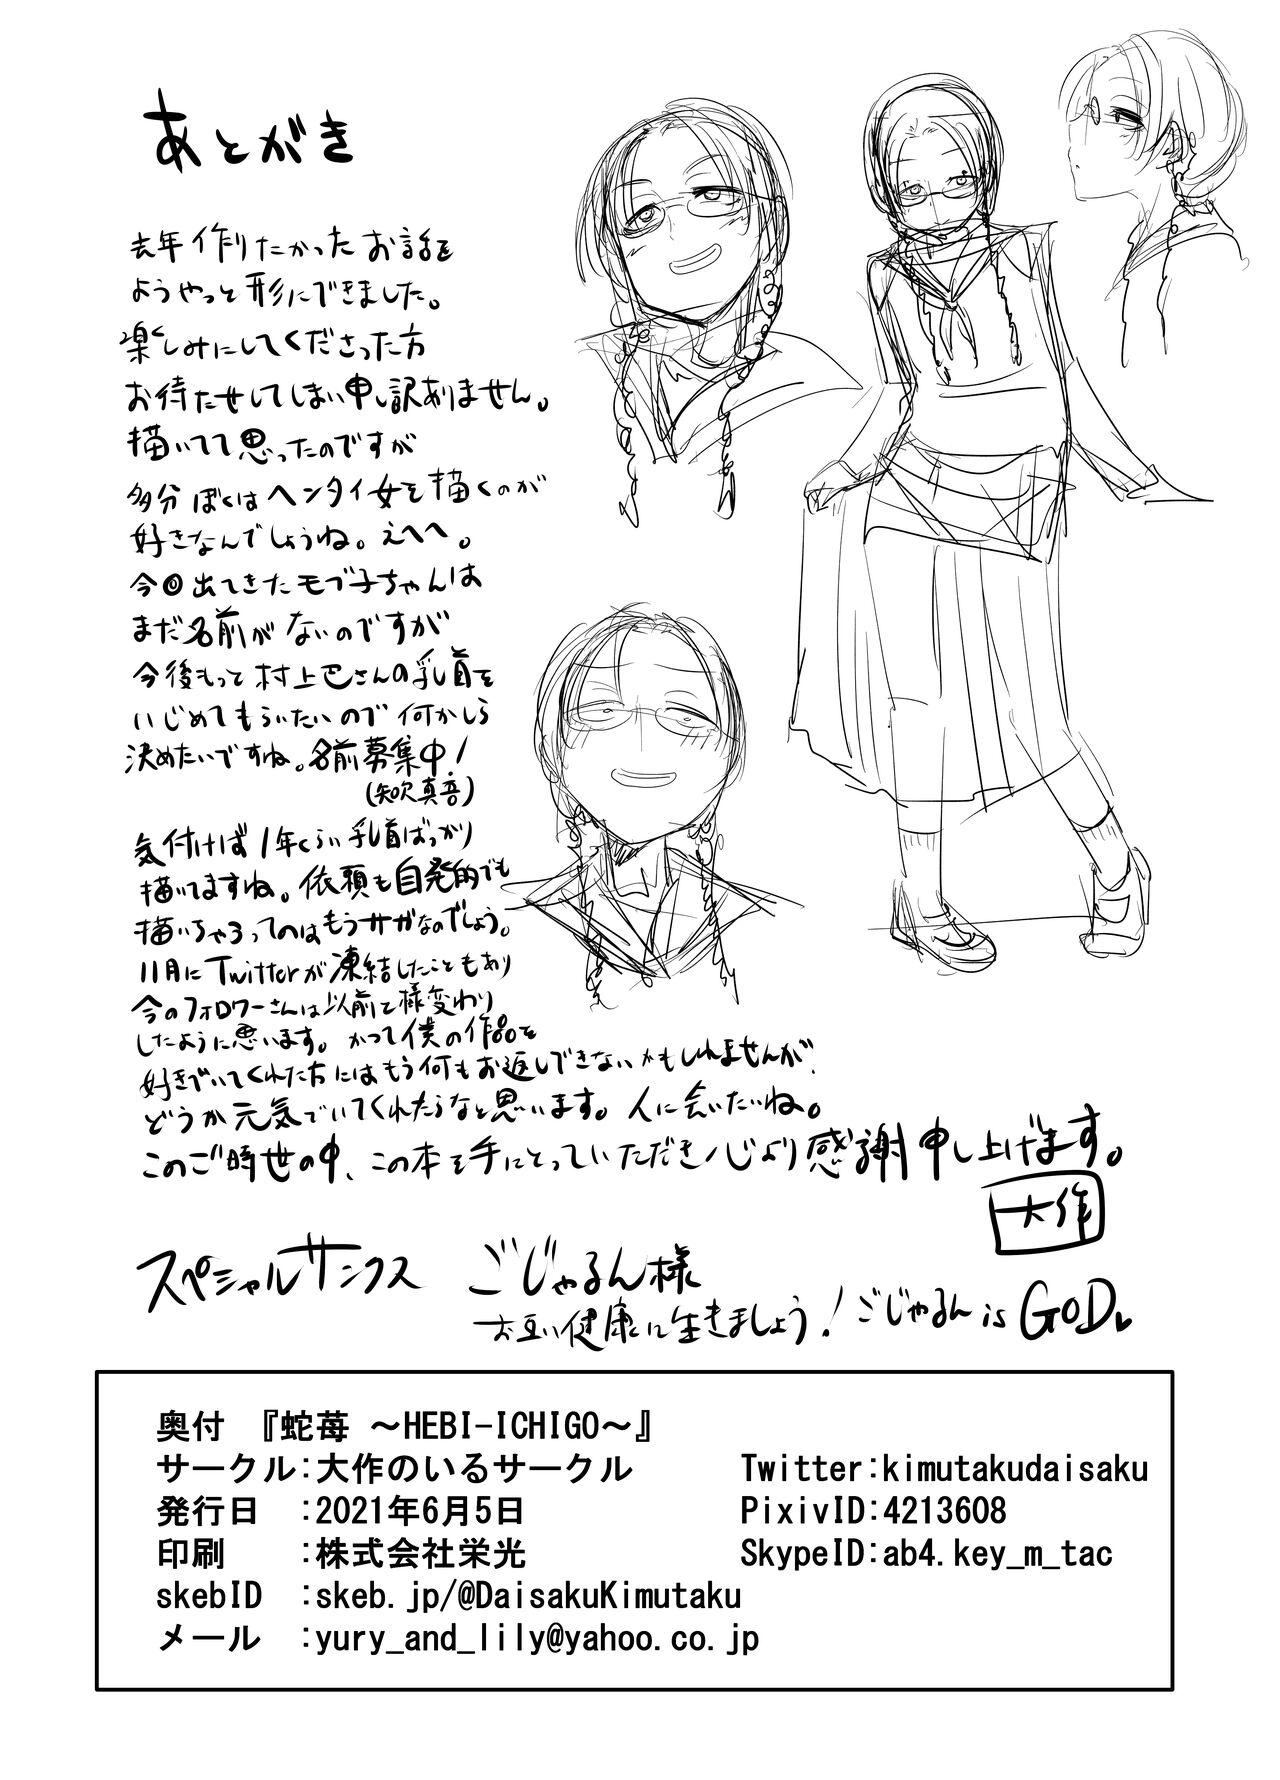 あとがき
去年作りたかったお話を
ようやっと形にできました。
楽しみにしてくださった方
お待たせしてしまい申し訳ありません。
描いてて思ったのですが
多分ぼくはヘンタイ女を描くのが
好きなんでしょうね。えへへ。
今回出てきたモブ子ちゃんは
まだ名前がないのですが
今後もって村上巴さんの乳首を
いじめてもらいたいので何かしら
決めたいですね。名前募集中!
(矢吹真音)
気付けば1年くらい乳首ばっかり
描いてますね。依頼も自発的でも
描いちゃうってのはもうサガなのでしょう。
11月にTwitterが凍結したこともあり
今のフォロワーさんは以前と様変わり
したように思います。かつて僕の作品を
好きでいてくれた方にはもう何もお返しできないかもしれませんが
どうか元気でいてくれたらなと思います。人に会いたいね。
このご時世の中、この本を手にとっていただき心より感謝申し上げます。
大作
スペシャルサンクス ごじゃるん様
お互い健康に生きましょう!ごじゃるん is GOD♥
奥付 『蛇苺 ～HEBI-ICHIGO～』
サークル:大作のいるサークル Twitter:kimutakudaisaku
発行日 :2021年6月5日 PixivID:4213608
印刷 :株式会社栄光 SkypeID:ab4.key_m_tac
skebID :skeb.jp/@DaisakuKimutaku
メール :yury_and_lily@yahoo.co.jp